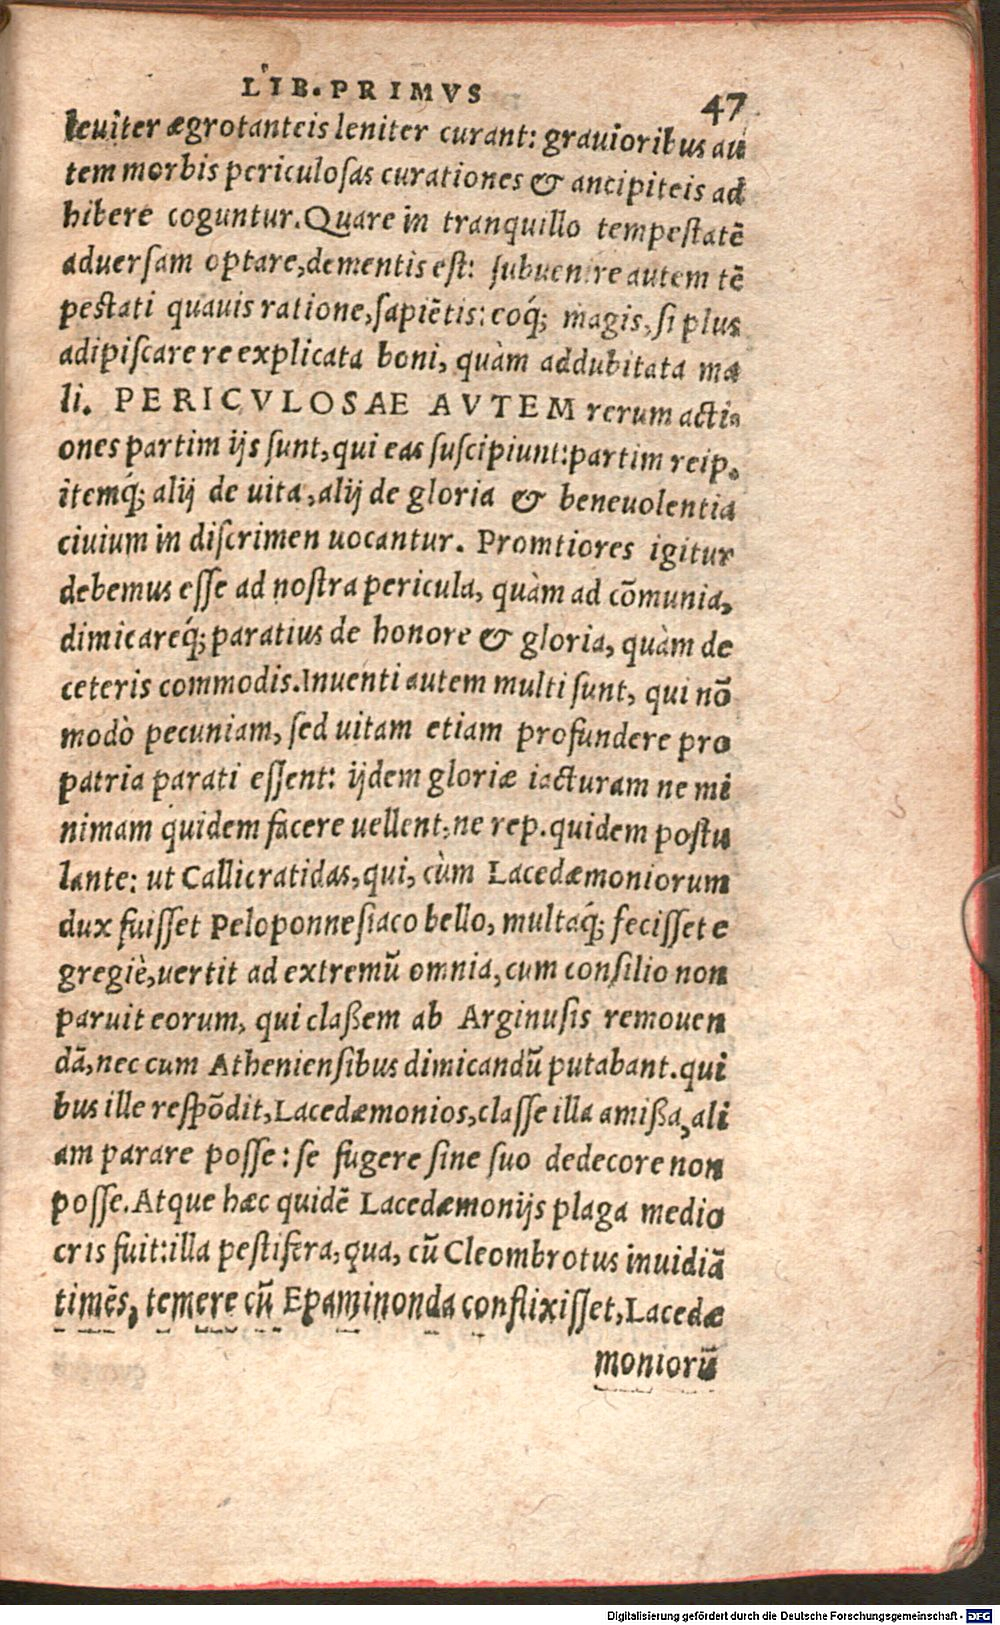 LIB. PRIMVS
47
leuiter ægrotanteis leniter curant: grauioribus au
tem morbis periculosas curationes & ancipiteis ad
hibere coguntur. Quare in tranquillo tempestatē
aduersam optare, dementis est: subuenire autem tē
pestati quauis ratione, sapiētis: eoq́; magis, si plus
adipiscare re explicata boni, quàm addubitata ma
li. PERICVLOSAE AVTEM rerum acti
ones partim ijs sunt, qui eas suscipiunt: partim reip.
itemq́; alij de uita, alij de gloria & beneuolentia
ciuium in discrimen uocantur. Promtiores igitur
debemus esse ad nostra pericula, quàm ad cōmunia,
dimicareq́; paratius de honore & gloria, quàm de
ceteris commodis. Inuenti autem multi sunt, qui nō
modò pecuniam, sed uitam etiam profundere pro
patria parati essent: ijdem gloriæ iacturam ne mi
nimam quidem facere uellent, ne rep. quidem postu
lante: ut Callicratidas, qui, cùm Lacedæmoniorum
dux fuisset Peloponnesiaco bello, multaq́; fecisset e
gregiè, uertit ad extremū omnia, cum consilio non
paruit eorum, qui claßem ab Arginusis remouen
dā, nec cum Atheniensibus dimicandū putabant. qui
bus ille respōdit, Lacedæmonios, classe illa amißa, ali
am parare posse: se fugere sine suo dedecore non
posse. Atque hæc quidē Lacedæmonijs plaga medio
cris fuit: illa pestifera, qua, cū Cleombrotus inuidiā
timēs, temere cū Epaminonda conflixisset, Lacedæ
moniorū
Digitalisierung gefördert durch die Deutsche Forschungsgemeinschaft - DFG